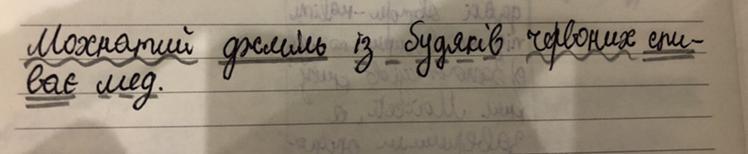 Мохнатий джміль із будяків червоних спи-
ває мед.